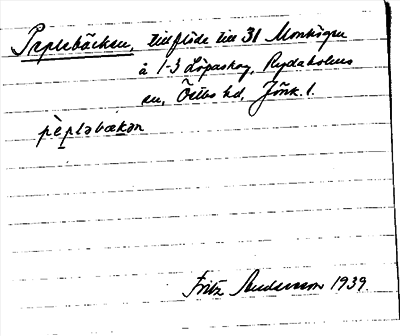 Peplabäcken, tillflöde till 31 Monhögen
å 1-3 Löpaskog, Rydaholms
sn, Östbo hd, Jönk. l.
pèplabækən
Fritz Andersson 1939.